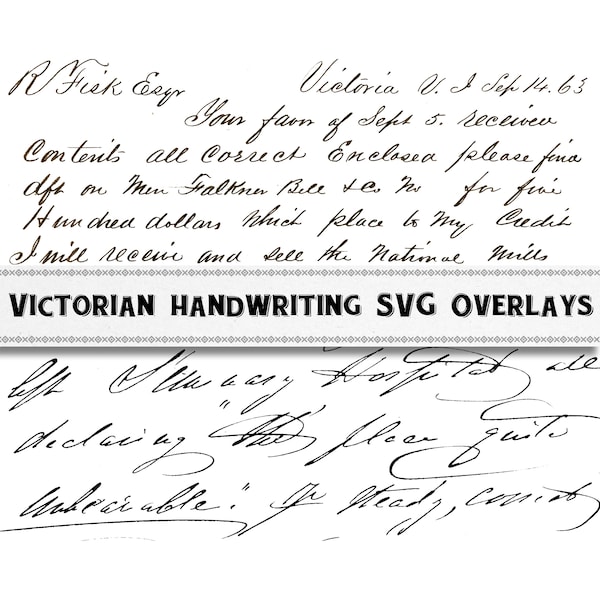 R Fisk Esqr Victoria V. I Sep 14. 63
Your favor of Sept 5. received
Contents all correct Enclosed please find
dft on Mess Falkner Bell & Co No for five
Hundred dollars Which place to My Credit
I will receive and sell the National Mills
VICTORIAN HANDWRITING SVG OVERLAYS
left Hospital, all
declaring "this place quite
unbearable". In steady,